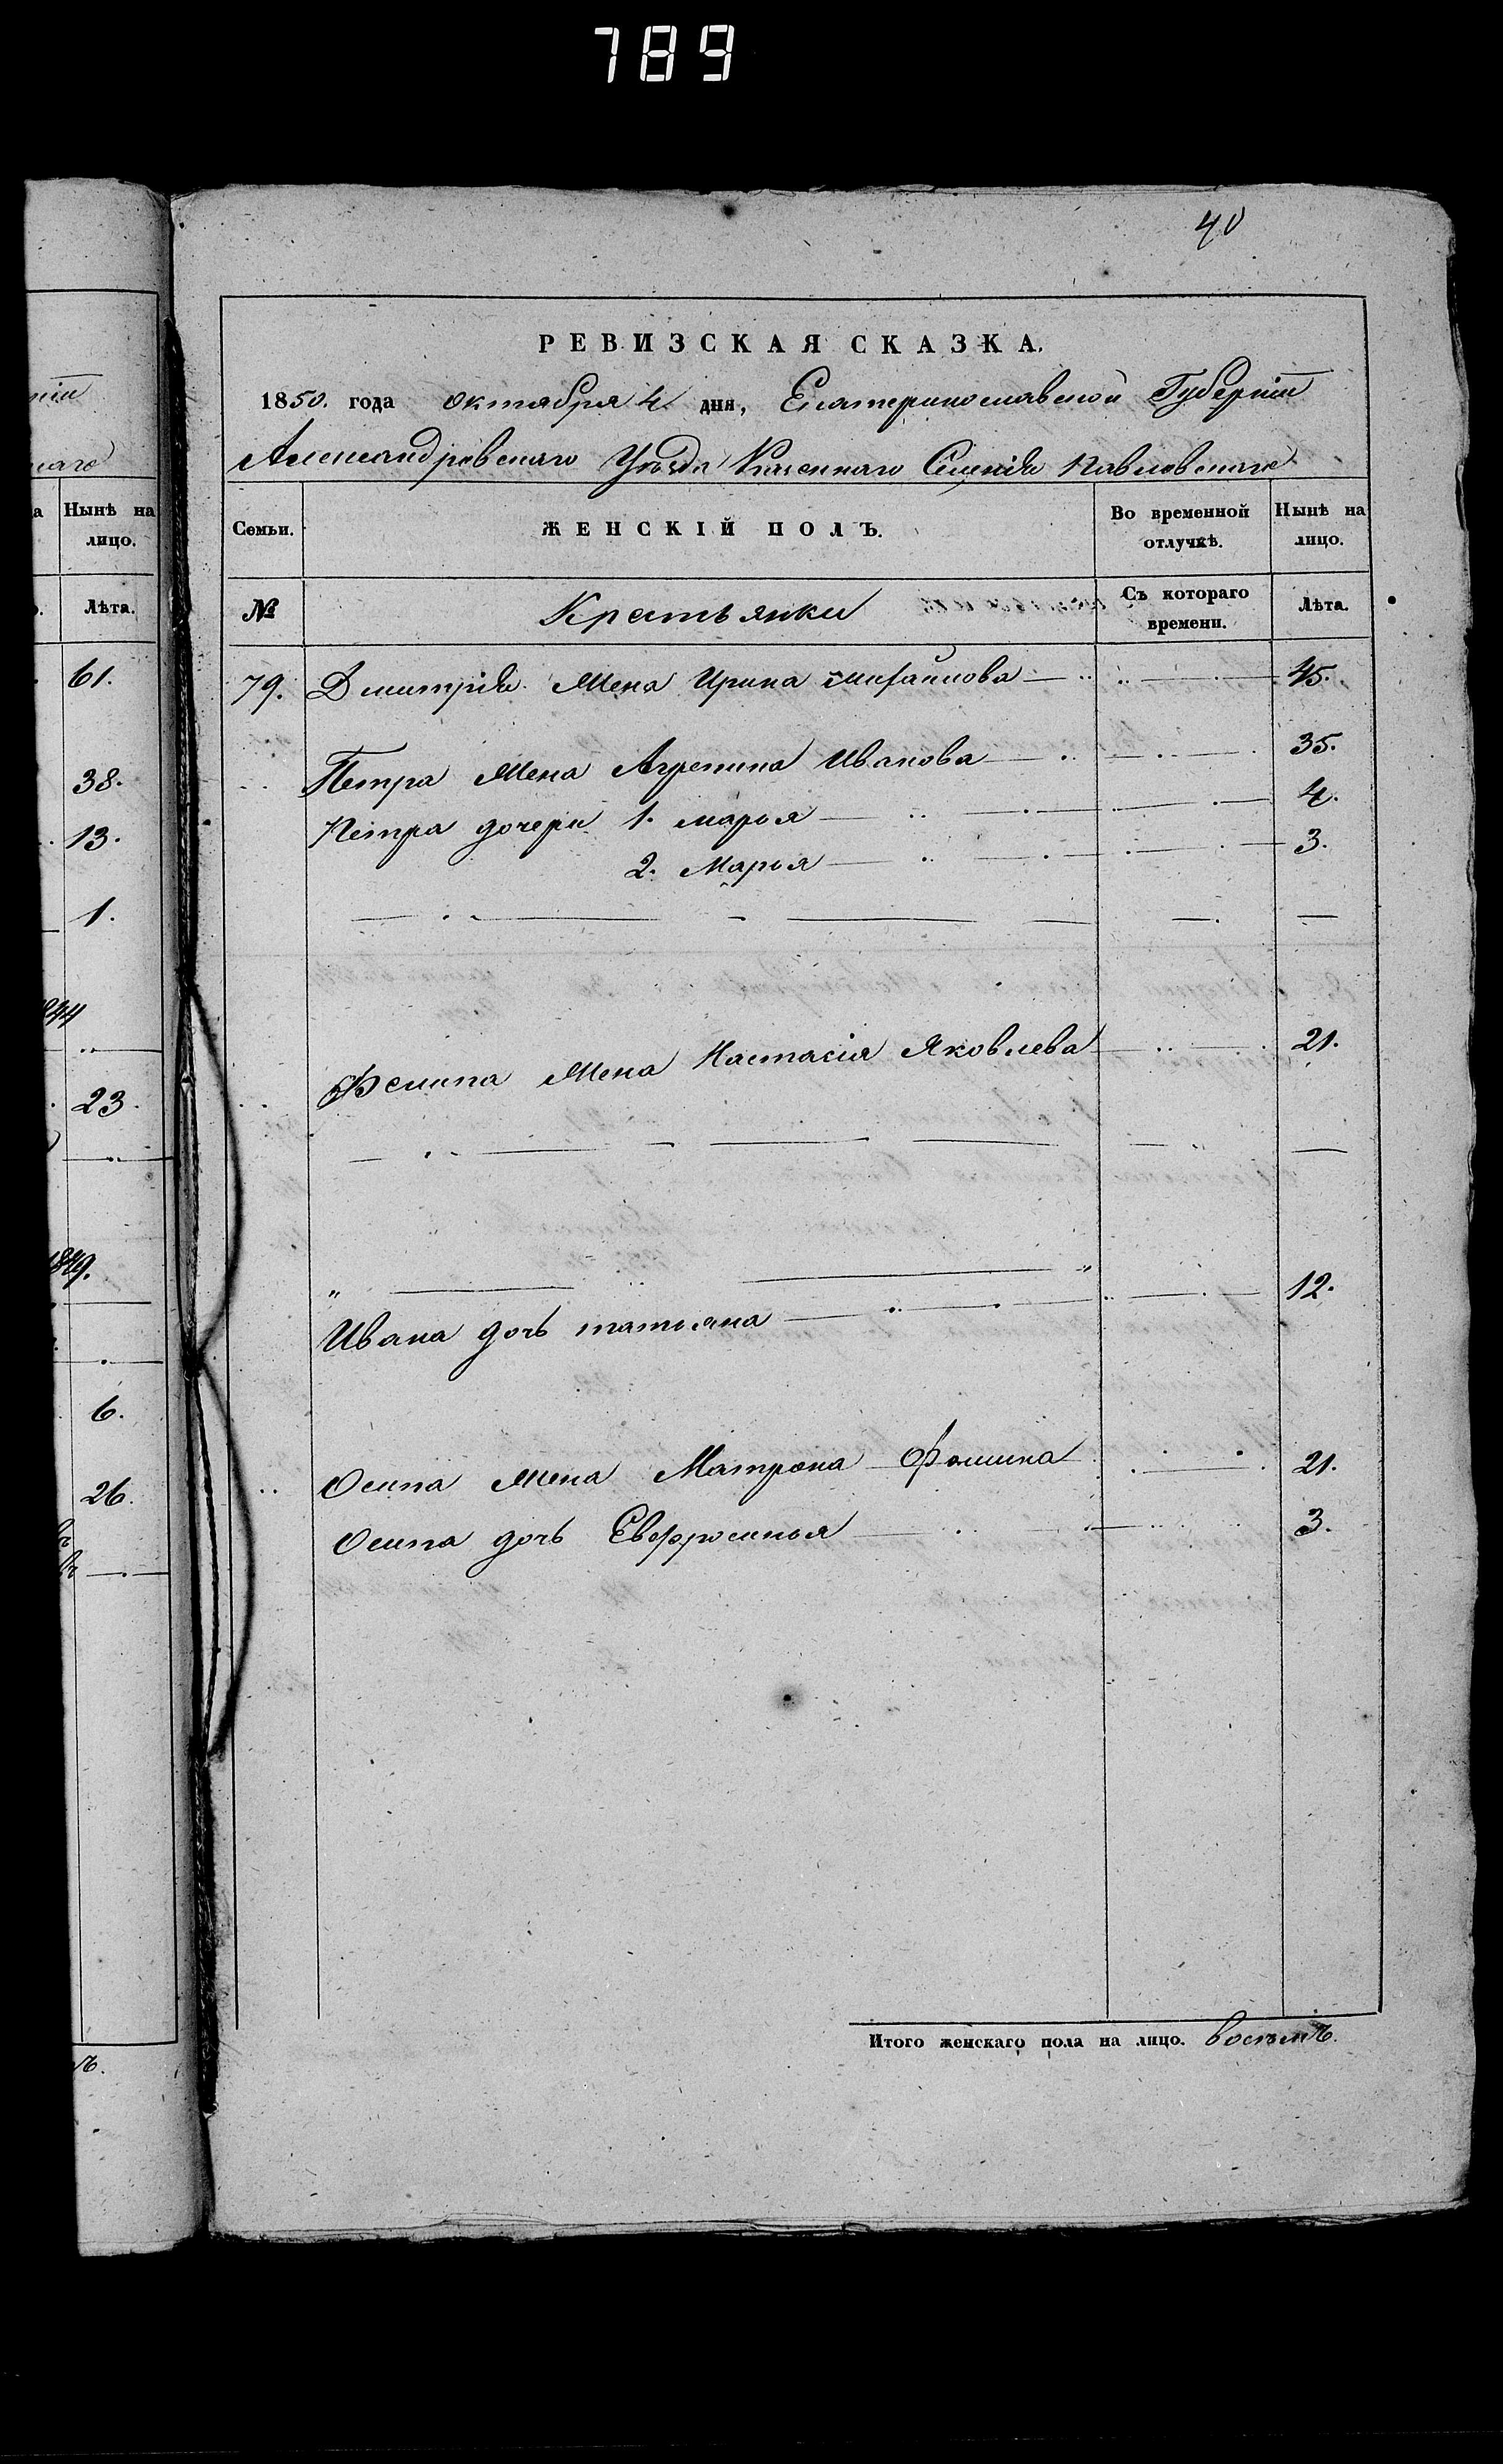 789
40
нiи
наго
а Нынѣ на
лицо.
Лѣта.
61.
38.
13.
1.
1844
23.
1849.
6.
26.
ъ.
РЕВИЗСКАЯ СКАЗКА.
1850. года октября 4 дня, Екатеринославской Губернiи
Александровскаго Уѣзда Казеннаго Селенiя Павловскаго
Семьи. ЖЕНСКIЙ ПОЛЪ. Во временной отлучкѣ. Нынѣ на лицо.
№ Крестьянки Съ котораго времени. Лѣта.
79. Дмитрiя Жена Ирина Михайлова 45.
Петра Жена Агрепина Иванова 35.
Петра дочери 1. марья 4.
2. Марья 3.
Филипа Жена Настасiя Яковлева 21.
Ивана дочь татьяна 12.
Осипа Жена Матрона Фомина 21.
Осипа дочь Евфросинья 3.
Итого женскаго пола на лицо. восемь.